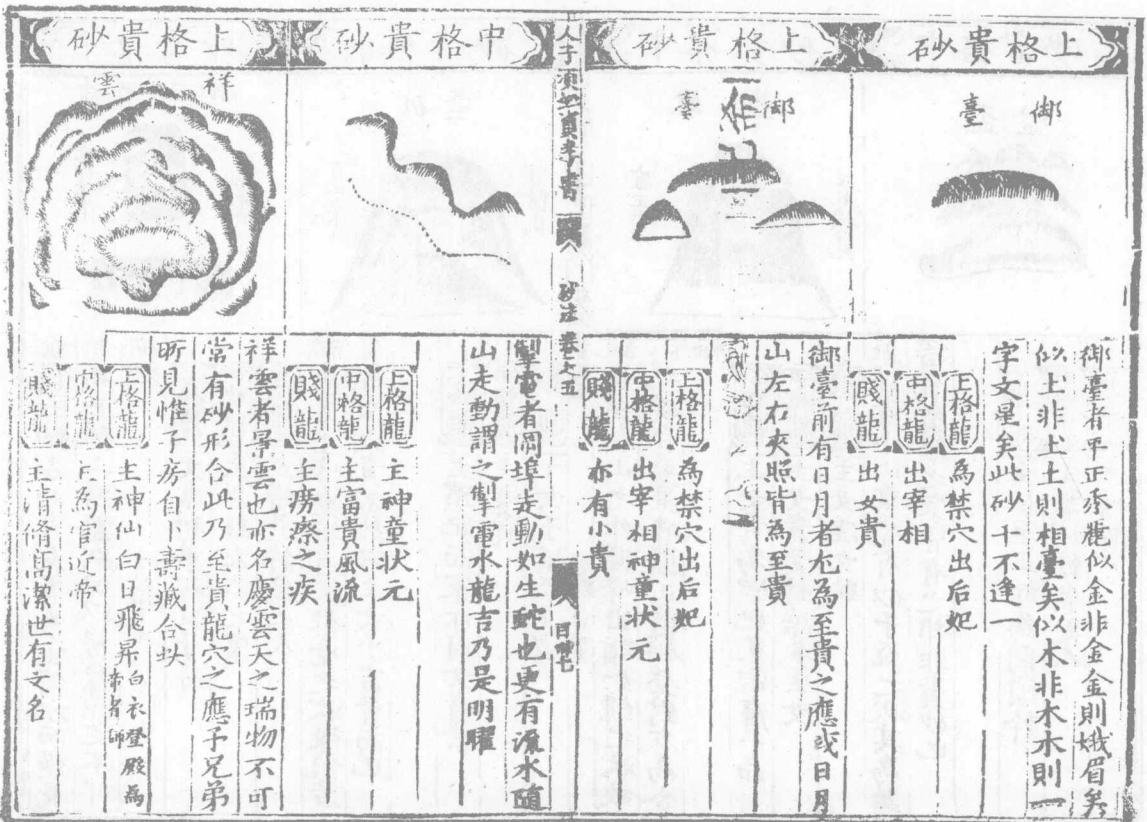 上格貴砂
御臺
御臺者平正
似金非金金則娥眉矣
似土非土土則相臺矣似木非木木則一
字文星矣此砂十不逢一
上格龍 為禁穴出后妃
中格龍 出宰相
賤龍 出女貴
上格貴砂
御臺
御臺前有日月者尤為至貴之應或日月
山左右夾照皆為至貴
上格龍 為禁穴出后妃
中格龍 出宰相神童狀元
賤龍 亦有小貴
人子須知
砂法 卷之五
中格貴砂
掣電者岡埠走動如生蛇也更有流水隨
山走動謂之掣電水龍吉乃是明曜
上格龍 主神童狀元
中格龍 主富貴風流
賤龍 主癆瘵之疾
上格貴砂
祥雲
祥雲者景雲也亦名慶雲天之瑞物不可
常有砂形合此乃至貴龍穴之應予兄弟
所見惟子房自卜壽藏合此
上格龍 主神仙白日飛昇白衣登殿為帝者師
中格龍 主為官近帝
賤龍 主清脩高潔世有文名